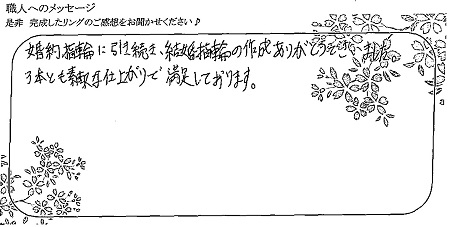 職人へのメッセージ
是非 完成したリングのご感想をお聞かせください♪
婚約指輪に引き続き、結婚指輪の作成ありがとうございました。
3本とも素敵な仕上がりで満足しております。